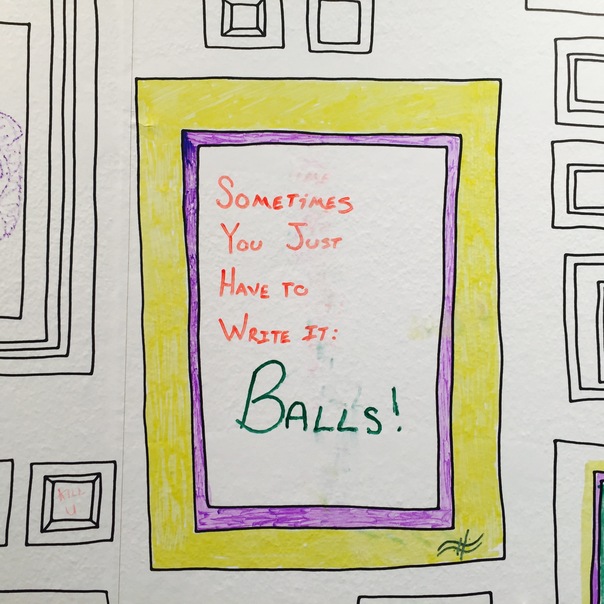 Sometimes
You Just
Have to
Write it:
Balls!